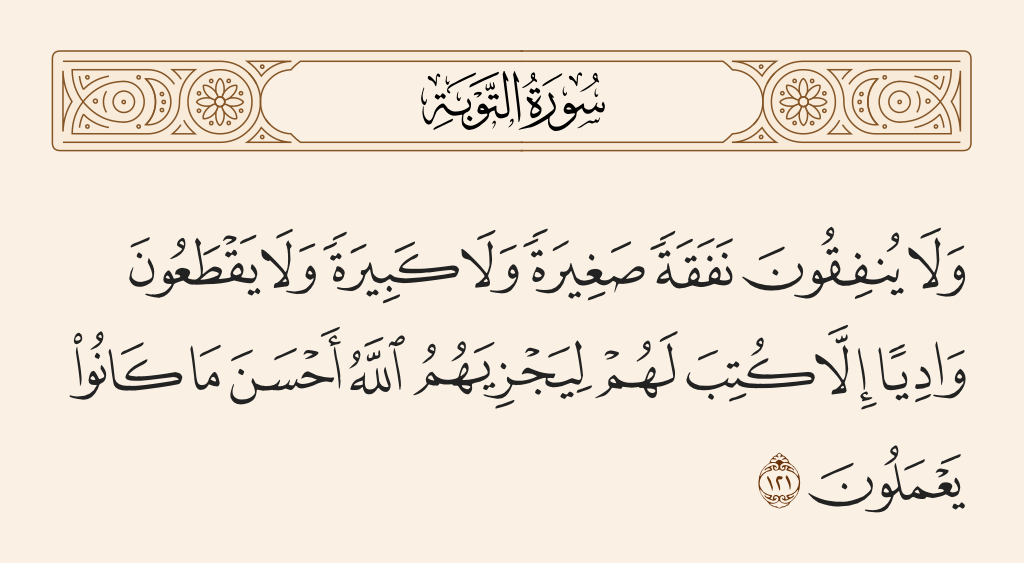 سُورَةُ التَّوْبَةِ
وَلَا يُنفِقُونَ نَفَقَةً صَغِيرَةً وَلَا كَبِيرَةً وَلَا يَقْطَعُونَ
وَادِيًا إِلَّا كُتِبَ لَهُمْ لِيَجْزِيَهُمُ ٱللَّهُ أَحْسَنَ مَا كَانُوا۟
يَعْمَلُونَ ١٢١